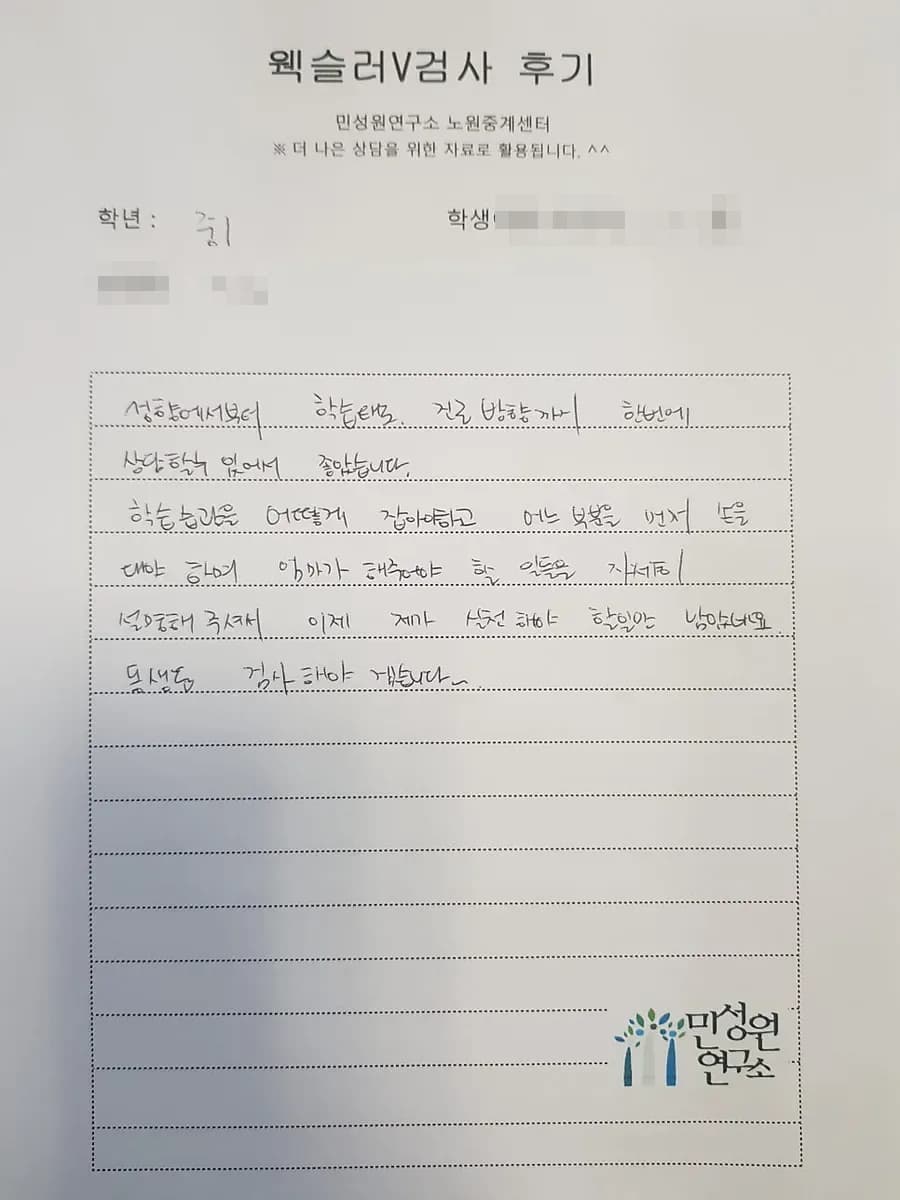 웩슬러V검사 후기
민성원연구소 노원중계센터
※ 더 나은 상담을 위한 자료로 활용됩니다. ^^
학년 : 중1 학생
성향에서부터 학습태도. 진로 방향까지 한번에
상담할수 있어서 좋았습니다.
학습습관을 어떻게 잡아야하고 어느 부분을 먼저 손을
대야 하며 엄마가 해주어야 할 일들을 자세히
설명해 주셔서 이제 제가 실천 해야 할일만 남았네요.
동생도 검사 해야 겠습니다~
민성원
연구소